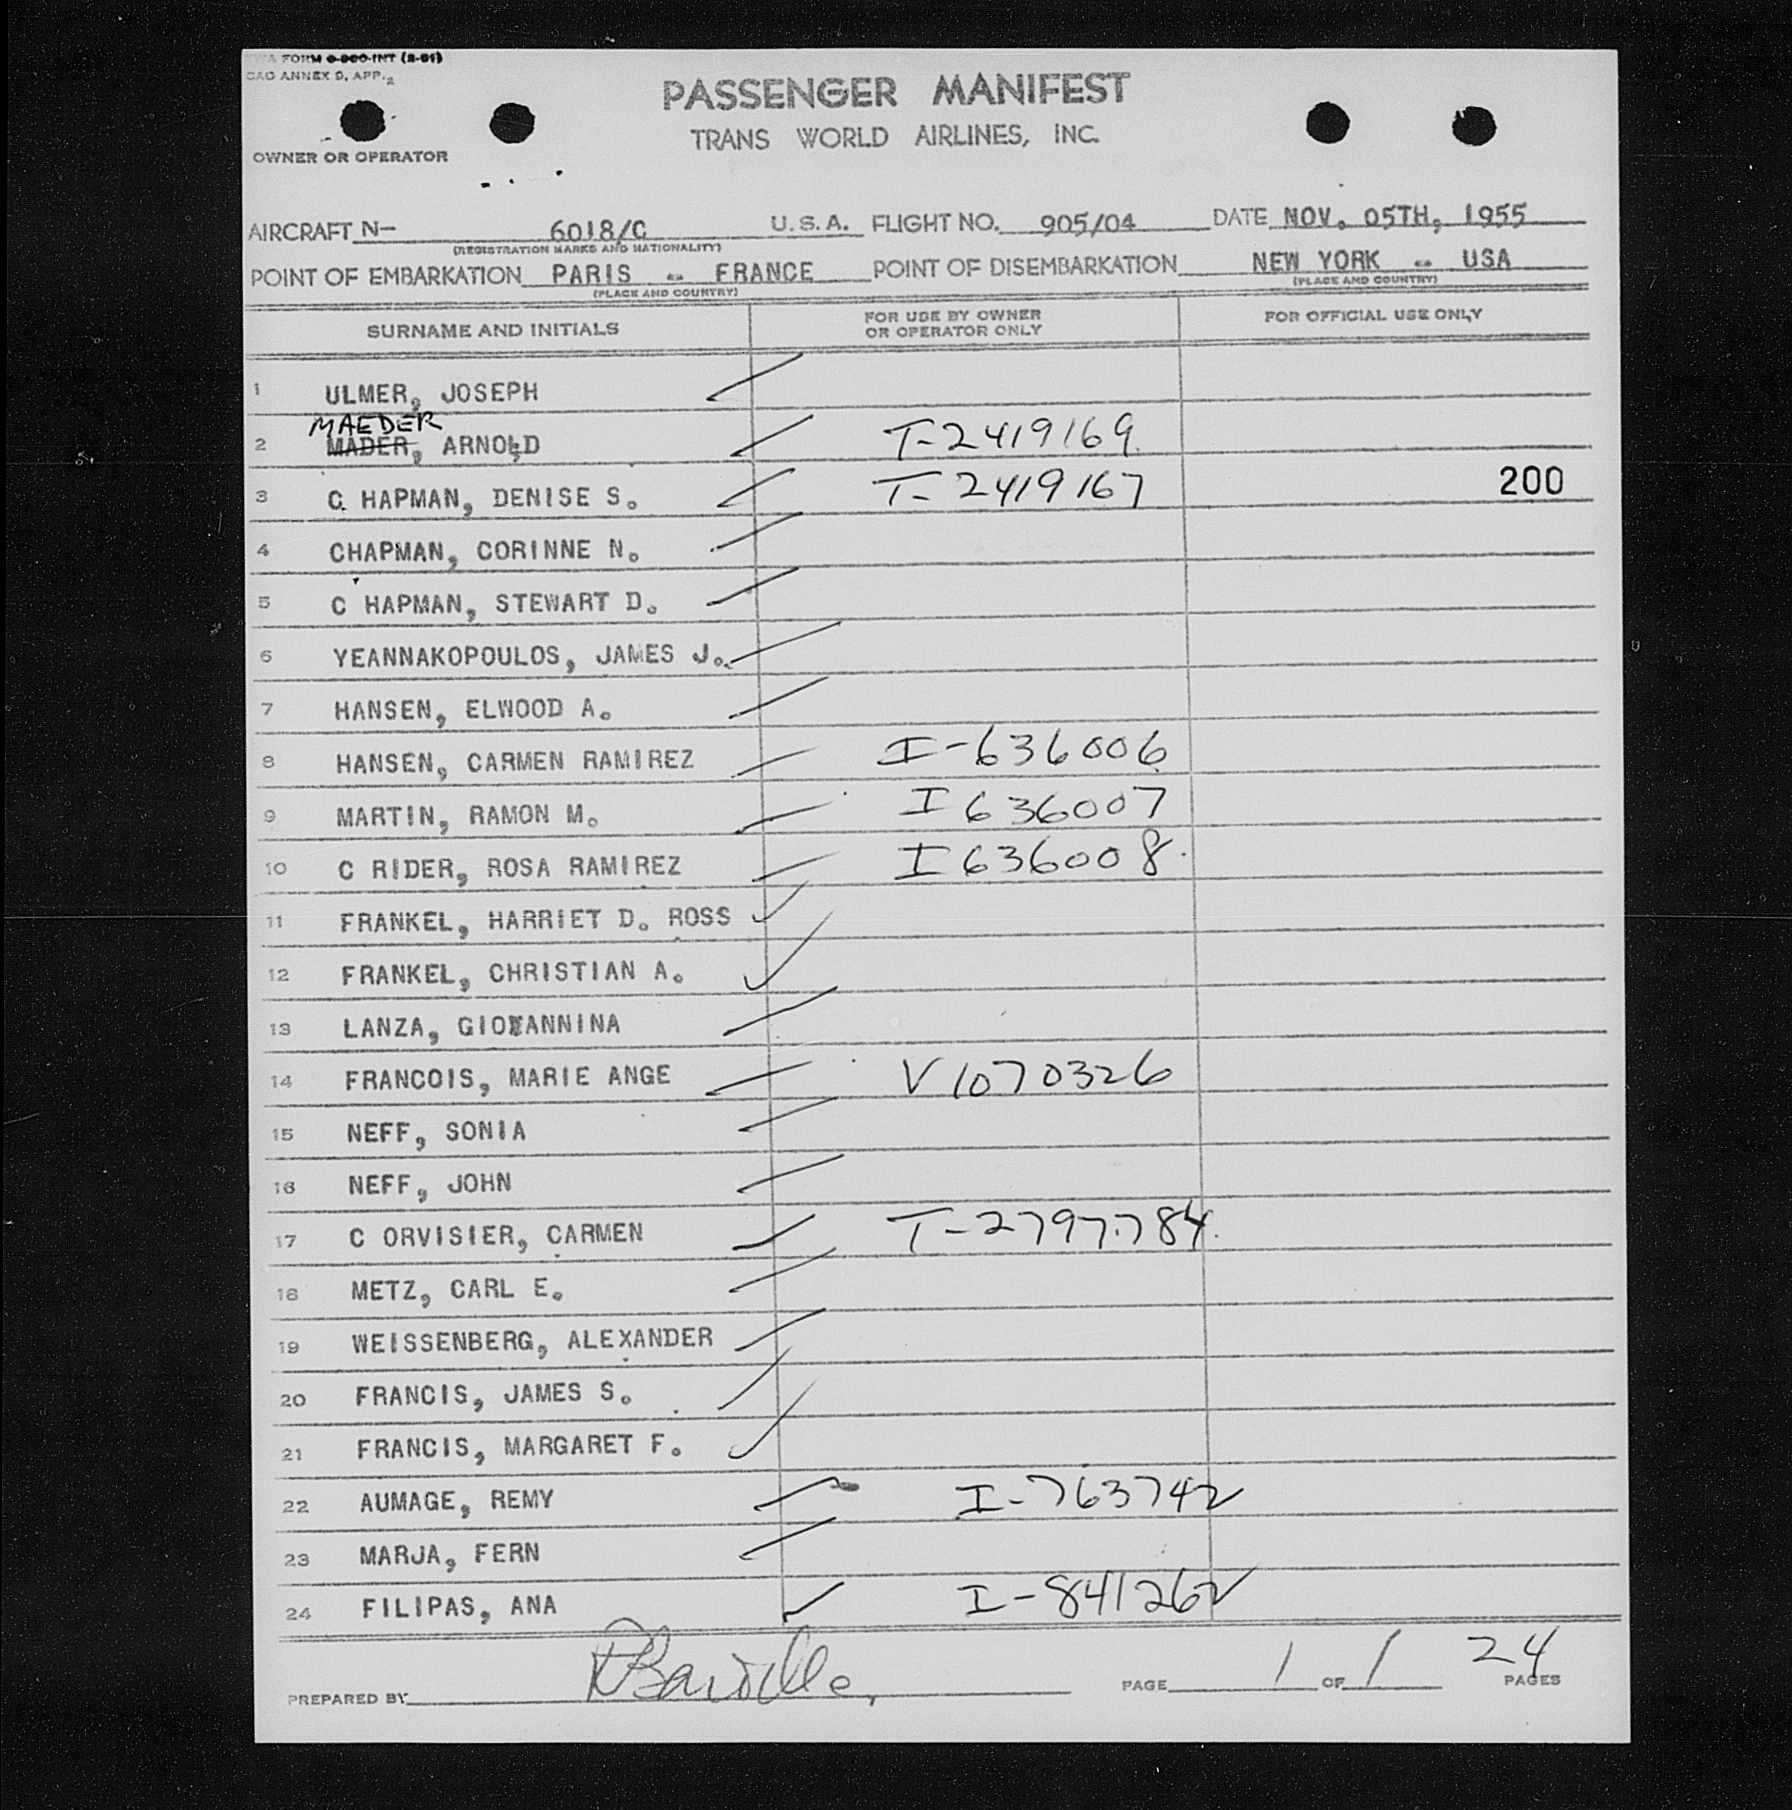 FORM 0-900-INT (2-51)
ICAO ANNEX 9, APP. 2
PASSENGER MANIFEST
TRANS WORLD AIRLINES, INC.
OWNER OR OPERATOR
AIRCRAFT N- 6018/C U.S.A. FLIGHT NO. 905/04 DATE NOV. 05TH, 1955
(REGISTRATION MARKS AND NATIONALITY)
POINT OF EMBARKATION PARIS - FRANCE POINT OF DISEMBARKATION NEW YORK - USA
(PLACE AND COUNTRY) (PLACE AND COUNTRY)
SURNAME AND INITIALS FOR USE BY OWNER OR OPERATOR ONLY FOR OFFICIAL USE ONLY
1 ULMER, JOSEPH
MAEDER
2 MADER, ARNOLD T-2419169
3 C HAPMAN, DENISE S. T-2419167 200
4 CHAPMAN, CORINNE N.
5 C HAPMAN, STEWART D.
6 YEANNAKOPOULOS, JAMES J.
7 HANSEN, ELWOOD A.
8 HANSEN, CARMEN RAMIREZ I-636006
9 MARTIN, RAMON M. I 636007
10 C RIDER, ROSA RAMIREZ I 636008
11 FRANKEL, HARRIET D. ROSS
12 FRANKEL, CHRISTIAN A.
13 LANZA, GIOVANNINA
14 FRANCOIS, MARIE ANGE V 1070326
15 NEFF, SONIA
16 NEFF, JOHN
17 C ORVISIER, CARMEN T-2797784
18 METZ, CARL E.
19 WEISSENBERG, ALEXANDER
20 FRANCIS, JAMES S.
21 FRANCIS, MARGARET F.
22 AUMAGE, REMY I-763742
23 MARJA, FERN
24 FILIPAS, ANA I-841262
PREPARED BY PAGE 1 OF 1 24 PAGES